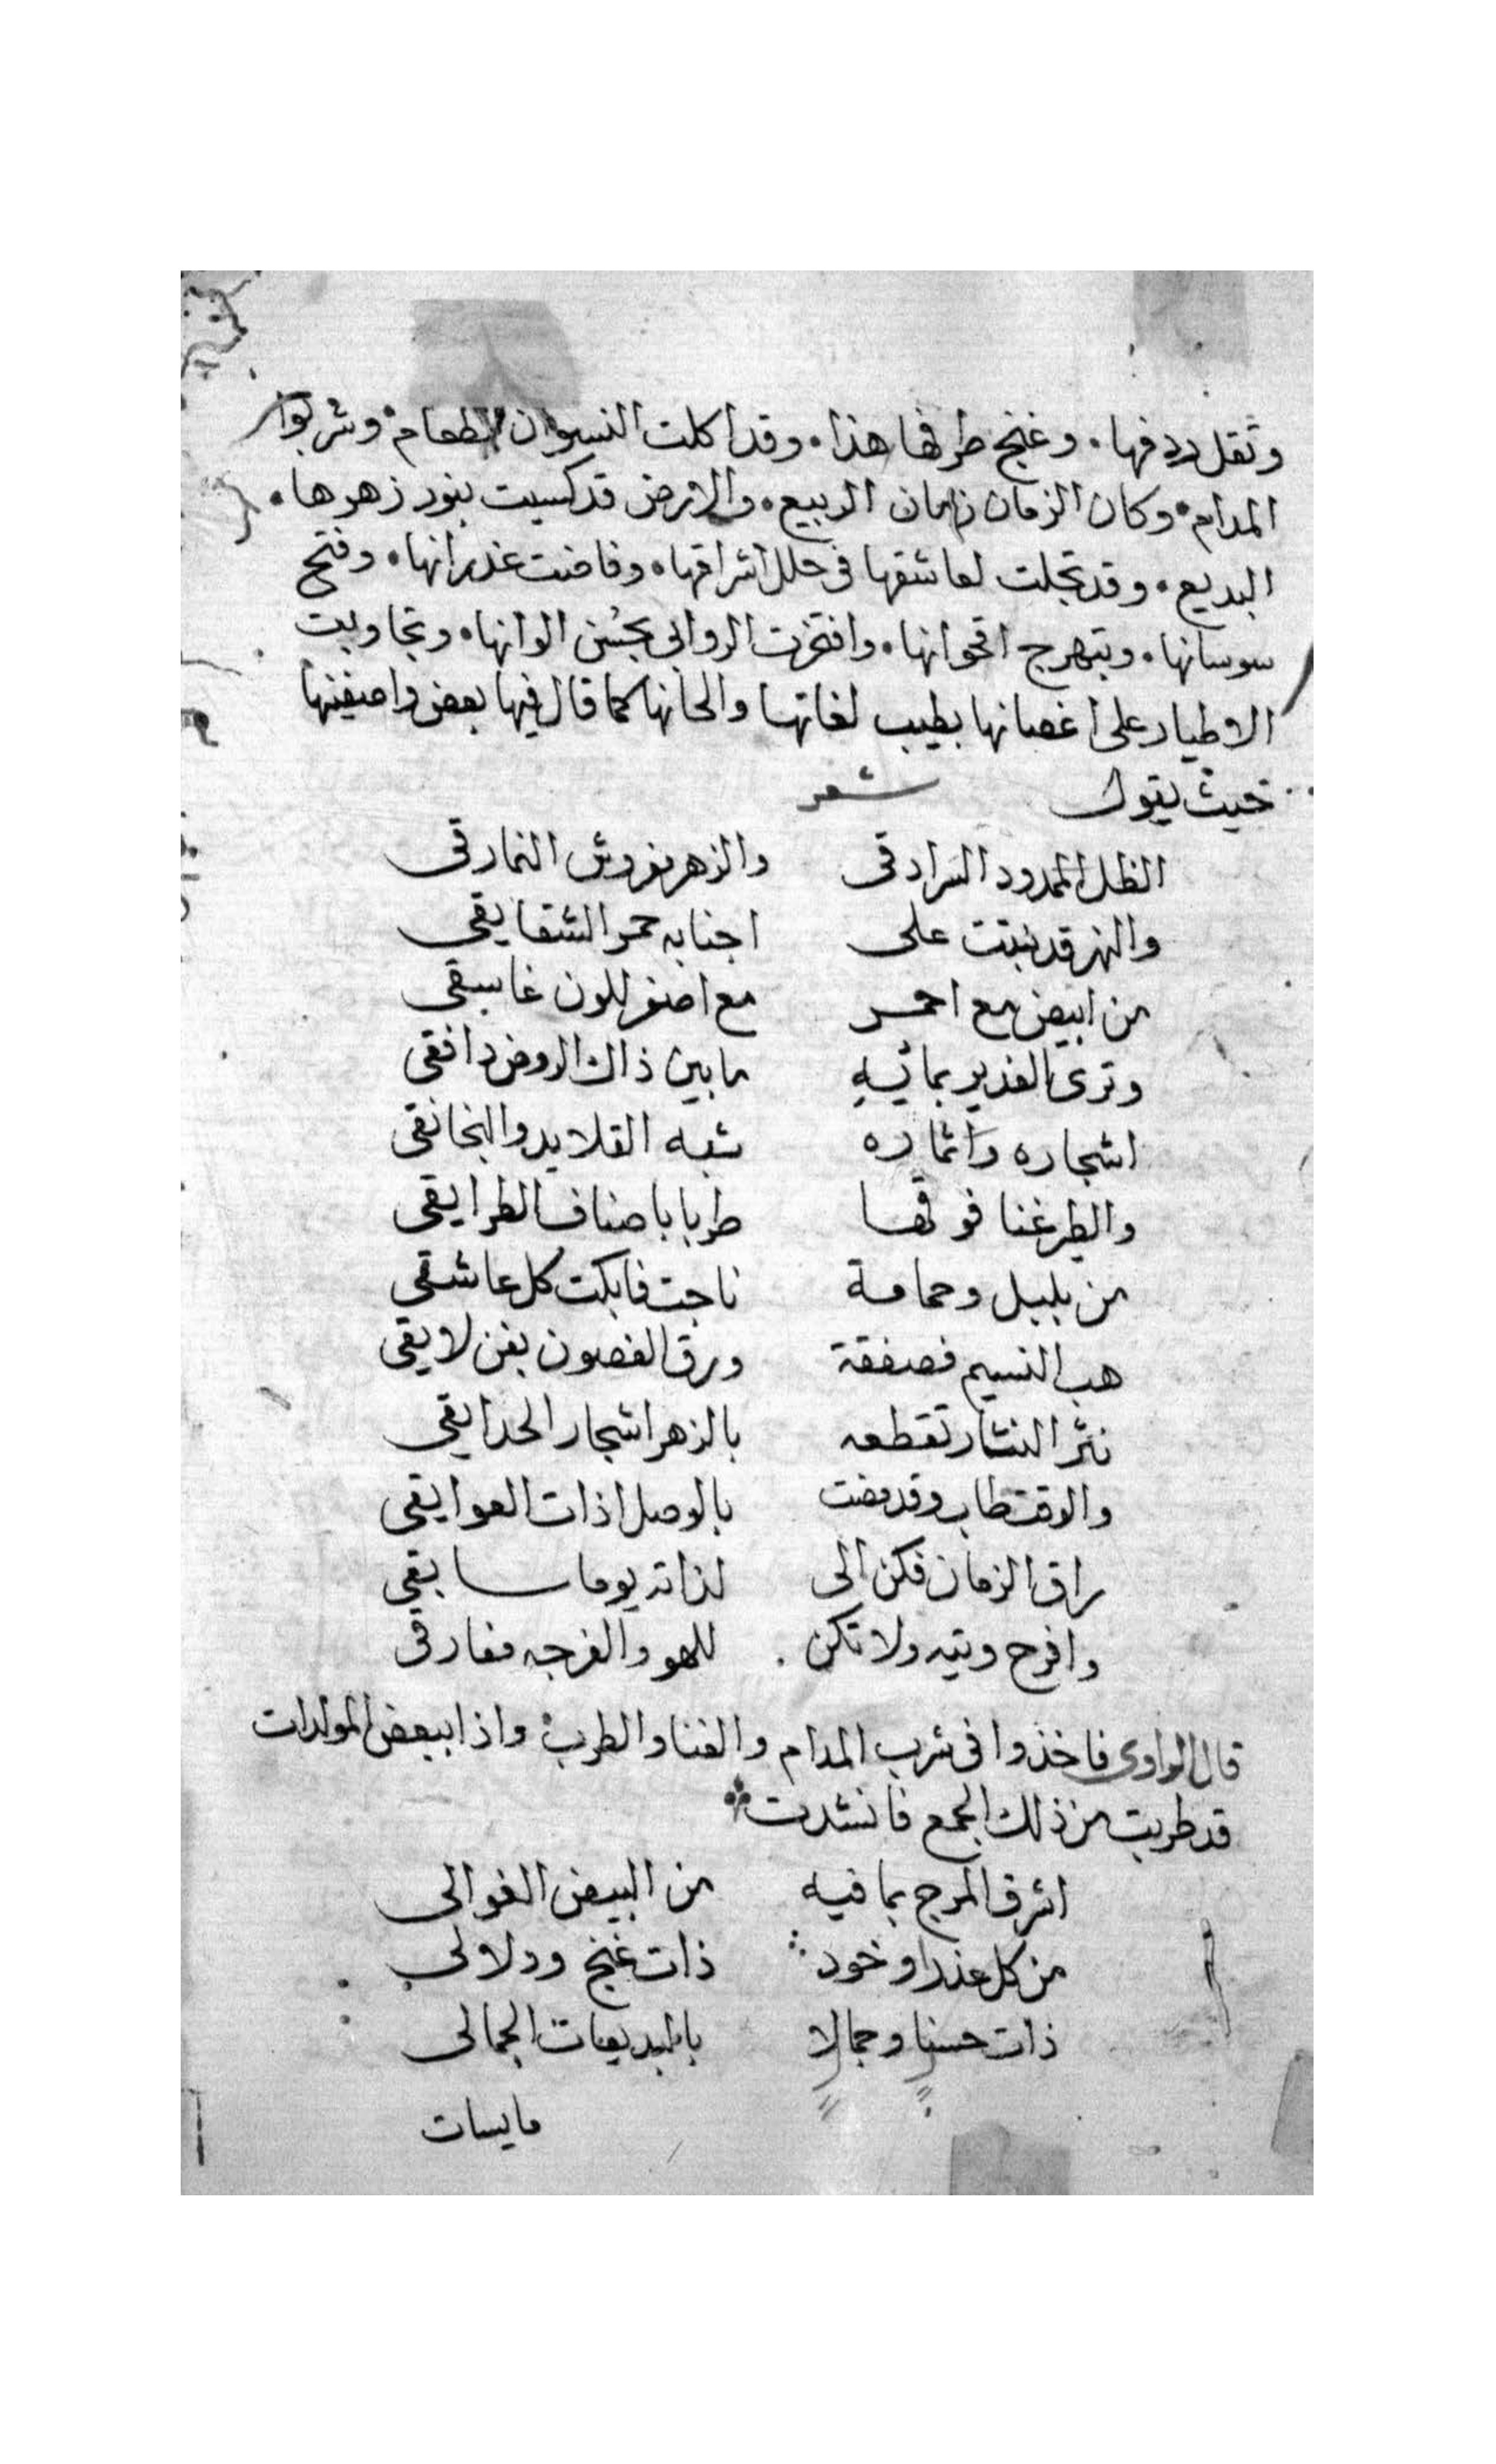 وثقل ردفها . وغنج طرفها هذا . وقد اكلت النسوان الطعام . وشربوا
المدام . وكان الزمان زمان الربيع . والارض قد كسيت بنور زهرها .
البديع . وقد تجلت لعاشقها فى حلل اشراقها . وفاضت غدرانها . وفتح
سوسانها . وتبهرج اقحوانها . وافتخرت الروابى بحُسن الوانها . وتجاوبت
الاطيار على اغصانها بطيب لغاتها والحانها كما قال فيها بعض واصفينها
حيث يقول شعر
الظل الممدود السرادقى والزهر مفروش النمارقى
والنهر قد نبتت على اجنابه حمر الشقايقى
من ابيض مع احمر مع اصفر اللون غاسقى
وترى الغدير بمائيه ما بين ذاك الروض دافقى
اشجاره واثماره شبه القلايد والنخانقى
والطير غنا فوقها طربا باصناف الطرايقى
من بلبل وحمامة ناحت فابكت كل عاشقى
هب النسيم فصفقة ورق الغصون بفن لايقى
نثر النثار تقطعه بالزهر اشجار الحدايقى
والوقت طاب وقد مضت بالوصل اذات العوايقى
راق الزمان فكن الى لذاته يوما سابقى
وافرح وتيه ولا تكن . للهو والفرجه مفارقى
قال الراوى فاخذوا فى شرب المدام والغنا والطرب . واذا ببعض المولدات
قد طربت من ذلك الجمع فانشدت
اشرق المرج بما فيه من البيض الغوالى
من كل عذرا وخود ذات غنج ودلالى
ذات حسنا وجمالا بالبديعات الجمالى
مايسات